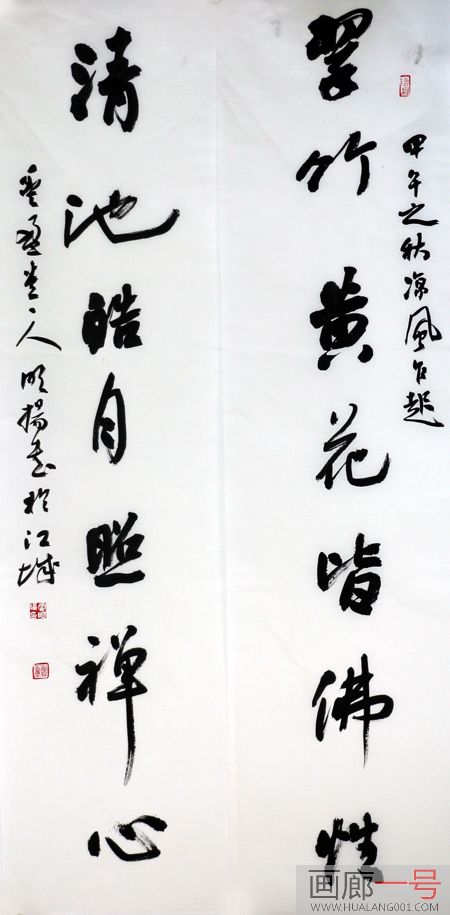 甲午之秋凉风乍起
翠竹黄花皆佛性
清池皓月照禅心
人明揚书於江城
画廊一号
WWW.HUALANG001.COM